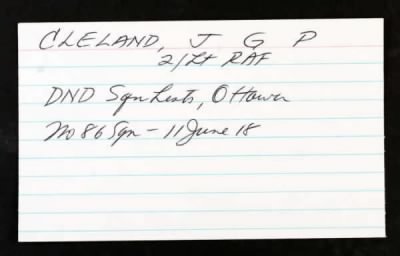 CLELAND, J G P
2/Lt RAF
DND Sqn Lists, Ottawa
No 86 Sqn - 11 June 18